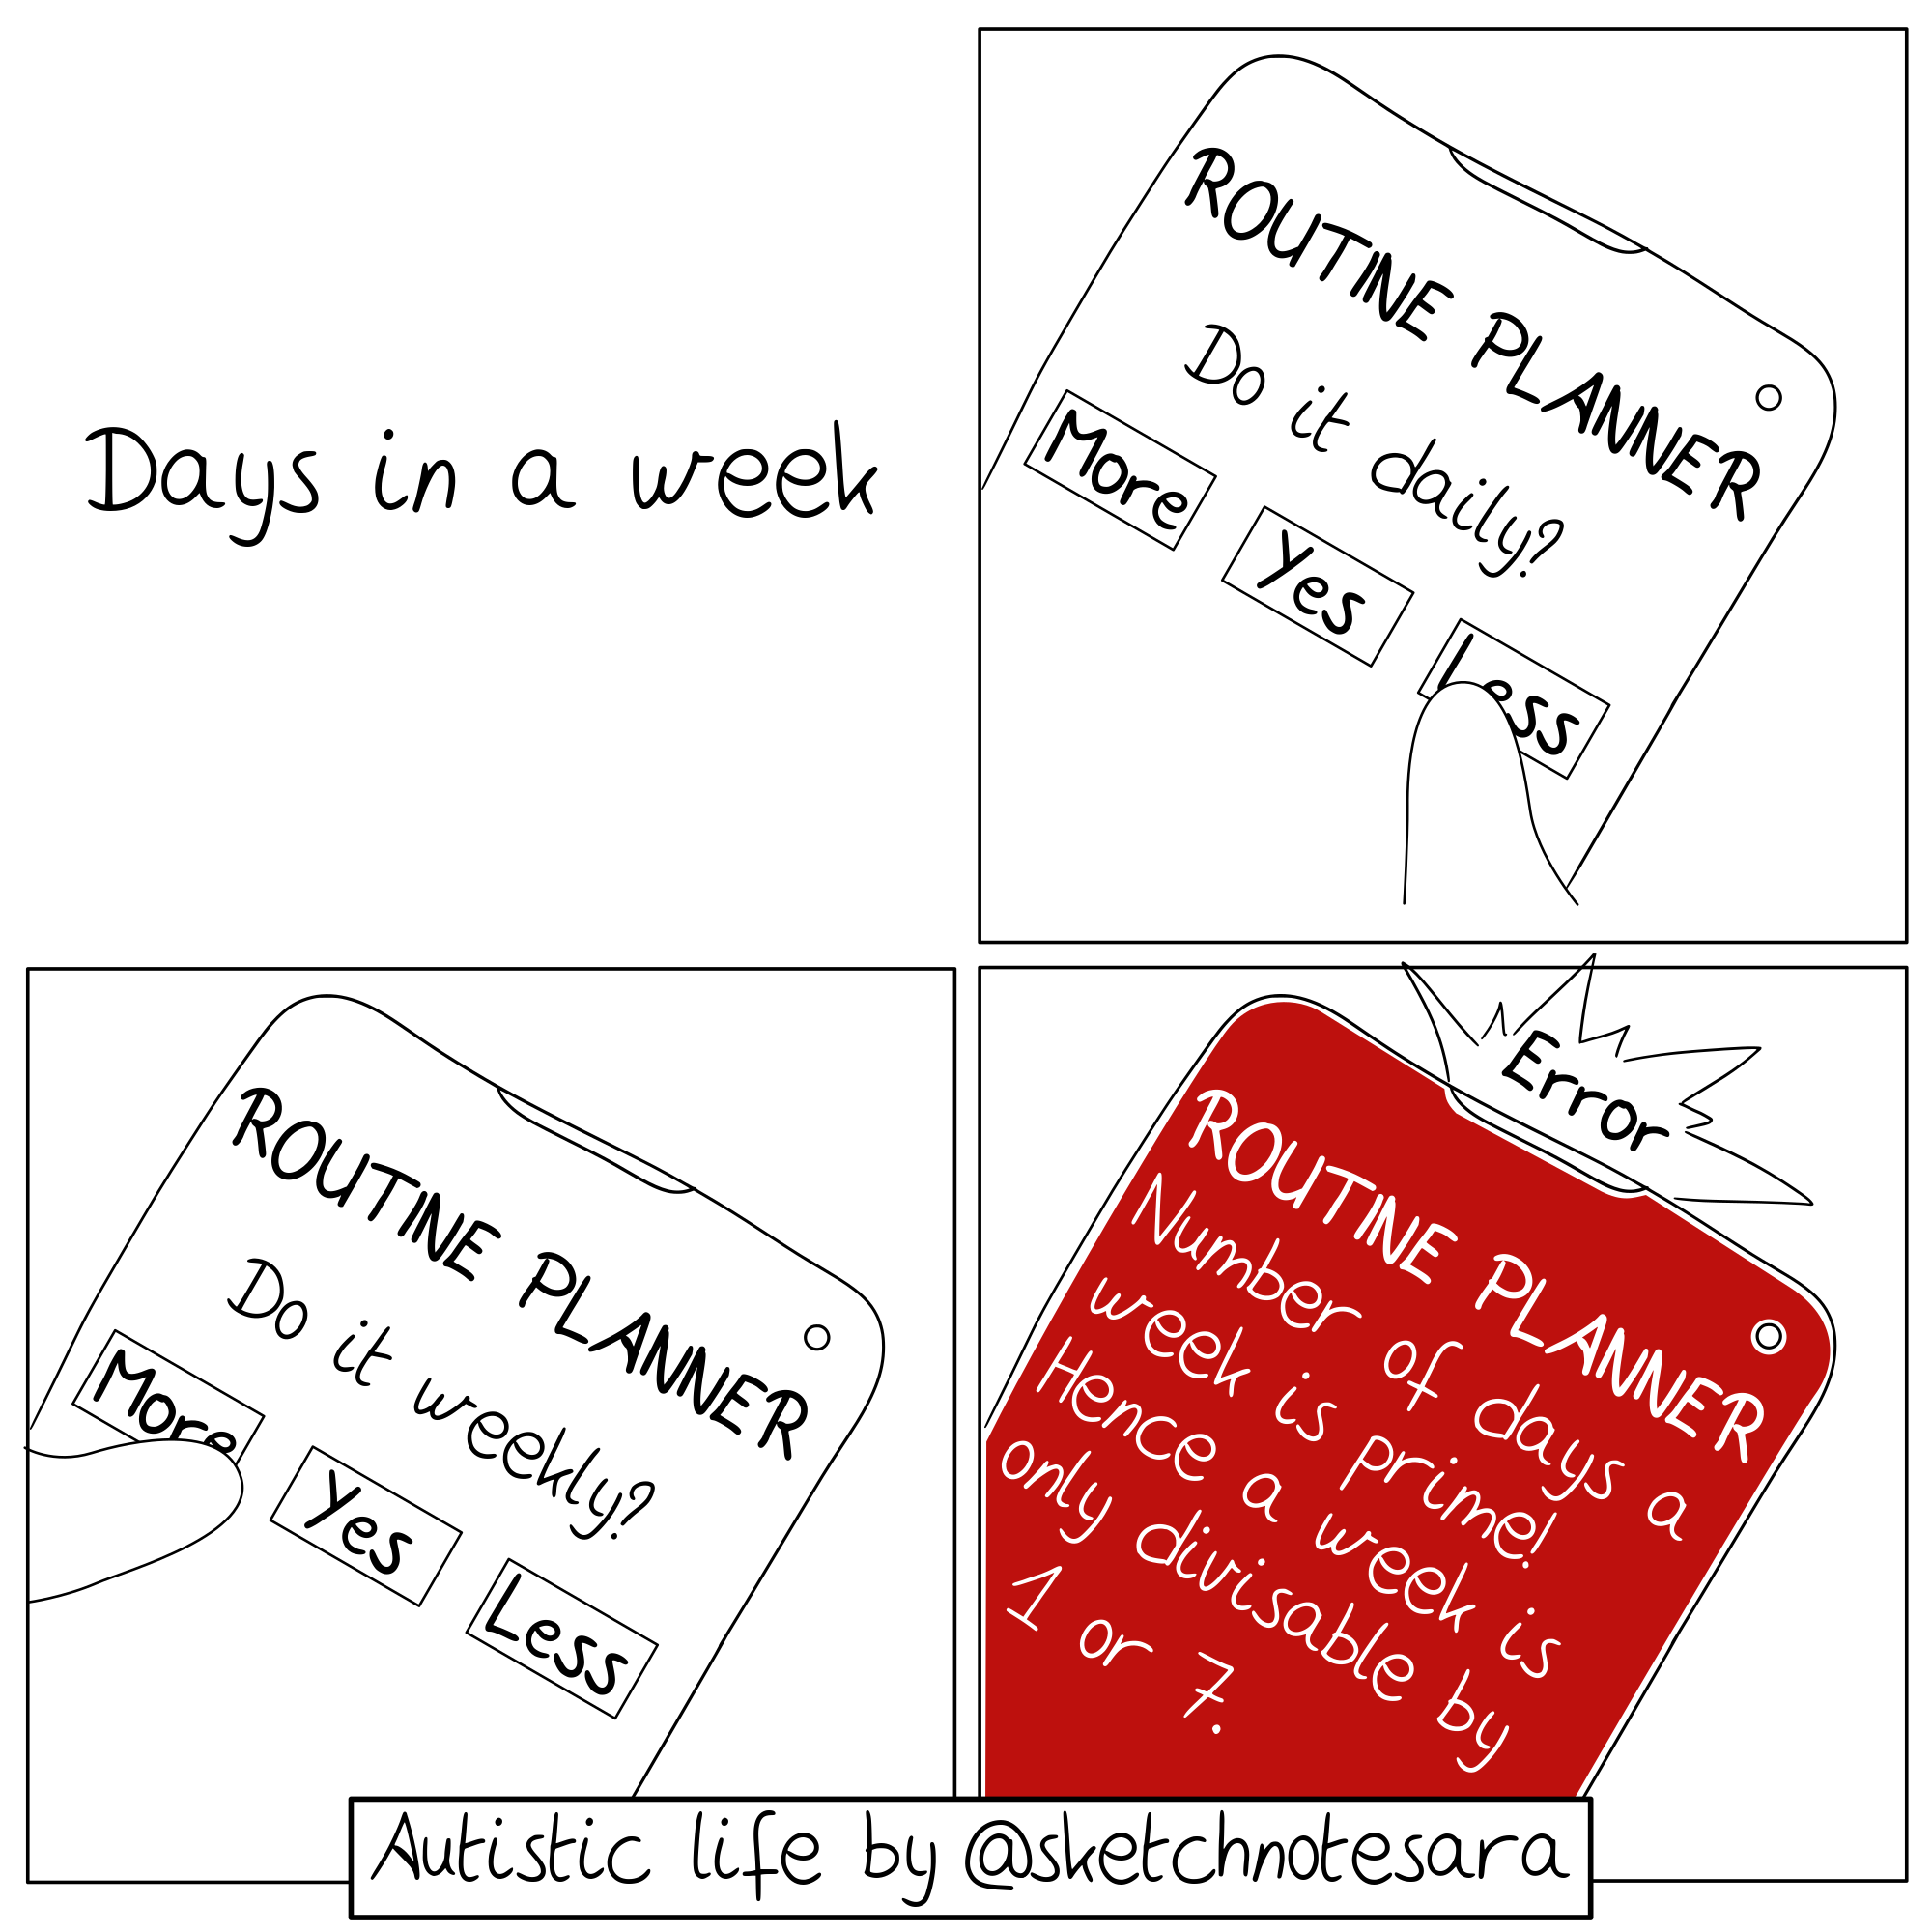 Days in a week
ROUTINE PLANNER
Do it daily?
More
Yes
Less
ROUTINE PLANNER
Do it weekly?
More
Yes
Less
Error
ROUTINE PLANNER
Number of days a
week is prime!
Hence a week is
only divisable by
1 or 7.
Autistic life by @sketchnotesara